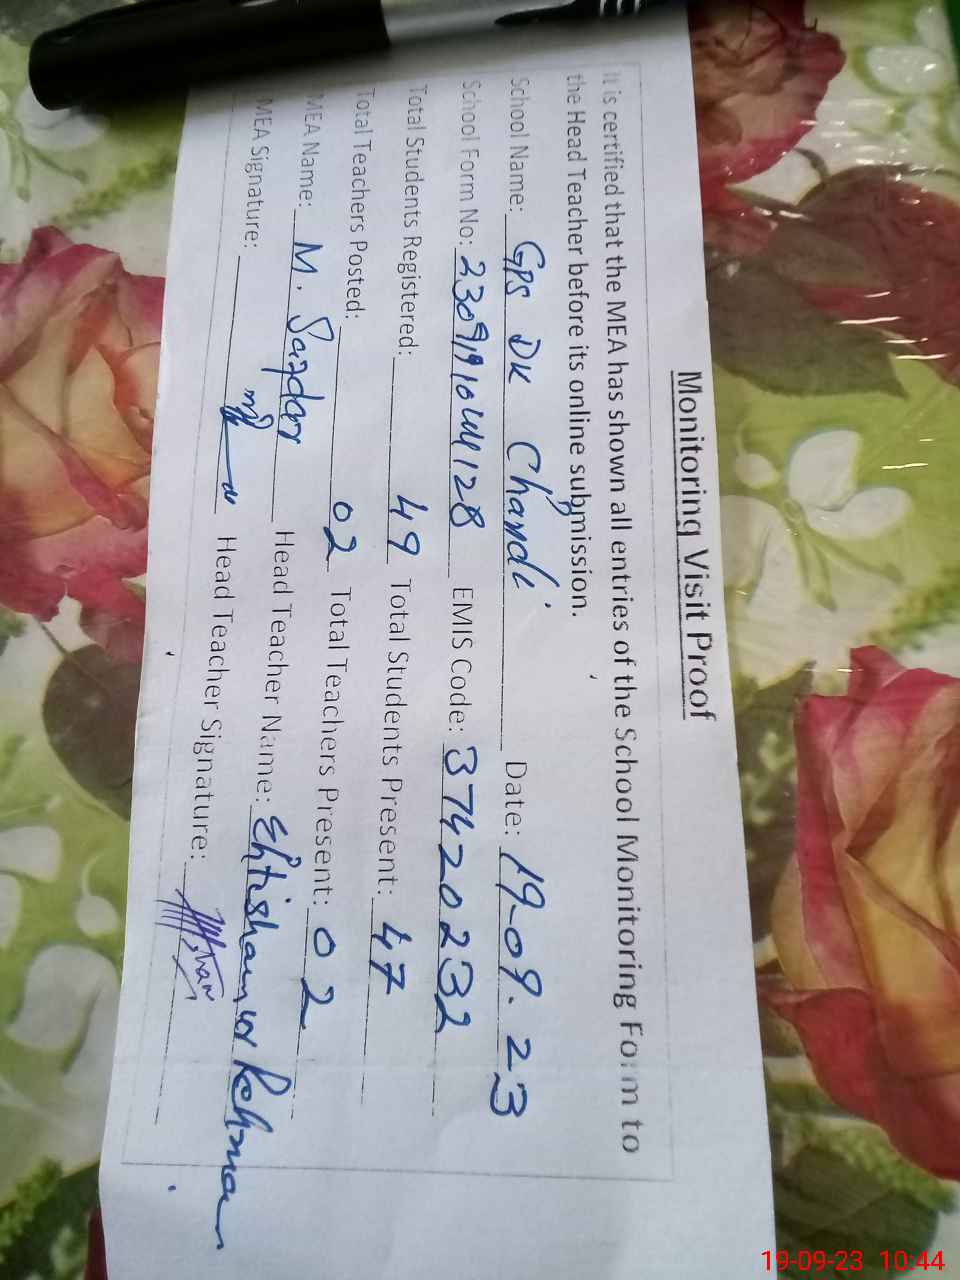 Monitoring Visit Proof
It is certified that the MEA has shown all entries of the School Monitoring Form to
the Head Teacher before its online submission.
School Name: GPS DK Chandi Date: 19-09.23
School Form No: 2309191044128 EMIS Code: 37420232
Total Students Registered: 49 Total Students Present: 47
Total Teachers Posted: 02 Total Teachers Present: 02
MEA Name: M. Safdar Head Teacher Name: Ehtisham ur Rehman
MEA Signature: Head Teacher Signature:
19-09-23 10:44